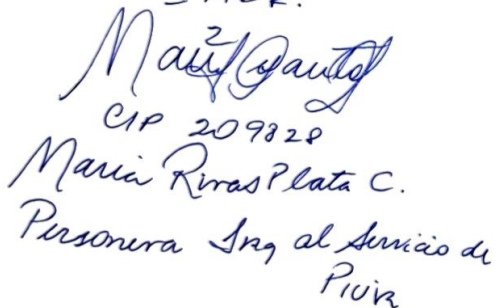 CIP 209828
Maria Rivas Plata C.
Personera Ing al Servicio de
Piura